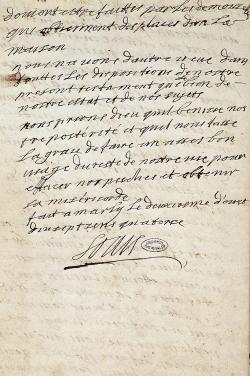 doivent estre faittes par les demeurants
qui obtiennent des places dans la
maison
nous navons dautre veue dans
touttes les dispositions de nostre
present testament que le bien de
nostre estat et de nos sujets
nous prions dieu quil benisse nos
tre posterité et quil nous fasse
la grace de faire un asses bon
usage du reste de nostre vie pour
effacer nos pechés et obtenir
sa misericorde
fait a marly le deuxiesme daoust
dix sept cens quatorze
Louis